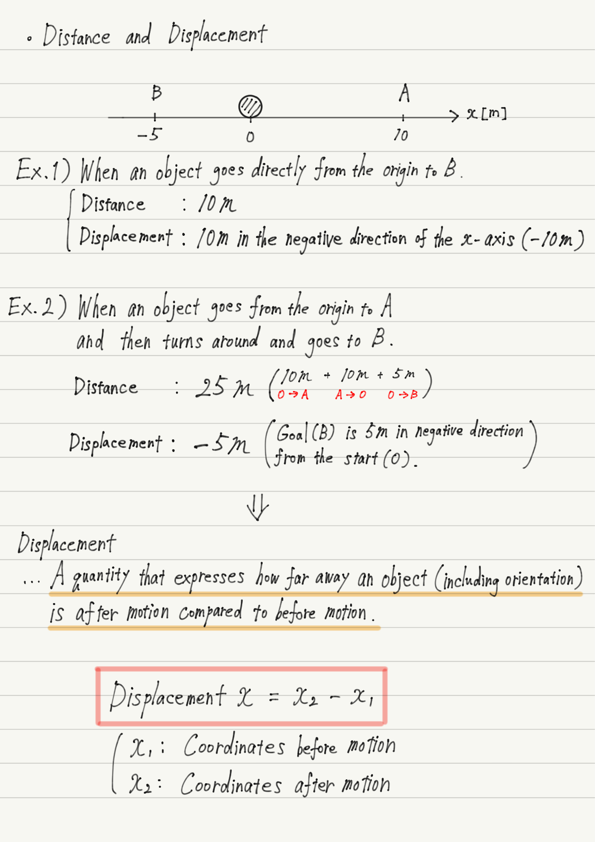 • Distance and Displacement
B A
x [m]
-5 0 10
Ex.1) When an object goes directly from the origin to B.
Distance : 10m
Displacement : 10m in the negative direction of the x-axis (-10m)
Ex.2) When an object goes from the origin to A
and then turns around and goes to B.
Distance : 25m (10m + 10m + 5m)
O→A A→O O→B
Displacement : -5m (Goal (B) is 5m in negative direction
from the start (O).)
⇓
Displacement
... A quantity that expresses how far away an object (including orientation)
is after motion compared to before motion.
Displacement x = x₂ - x₁
x₁: Coordinates before motion
x₂: Coordinates after motion